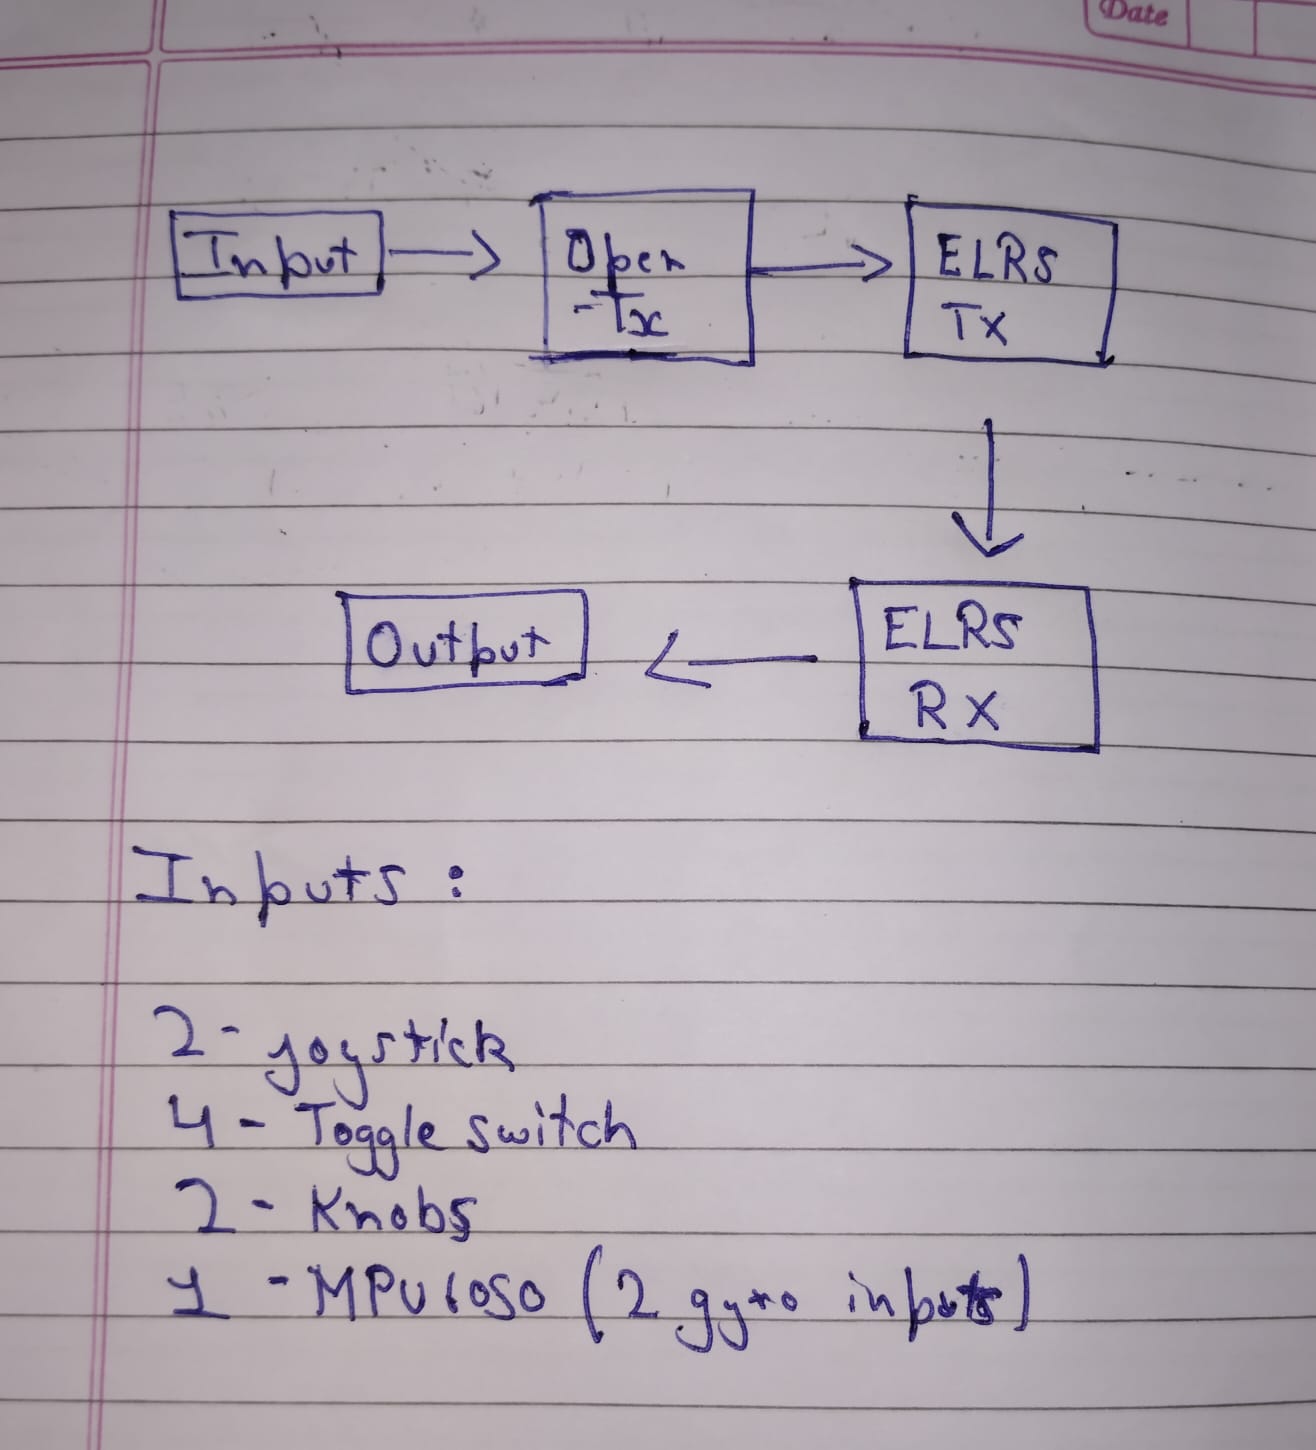 Date
Input
Open
-Tx
ELRS
Tx
Output
ELRS
RX
Inputs :
2 - joystick
4 - Toggle switch
2 - Knobs
1 - MPU6050 (2 gyro inputs)